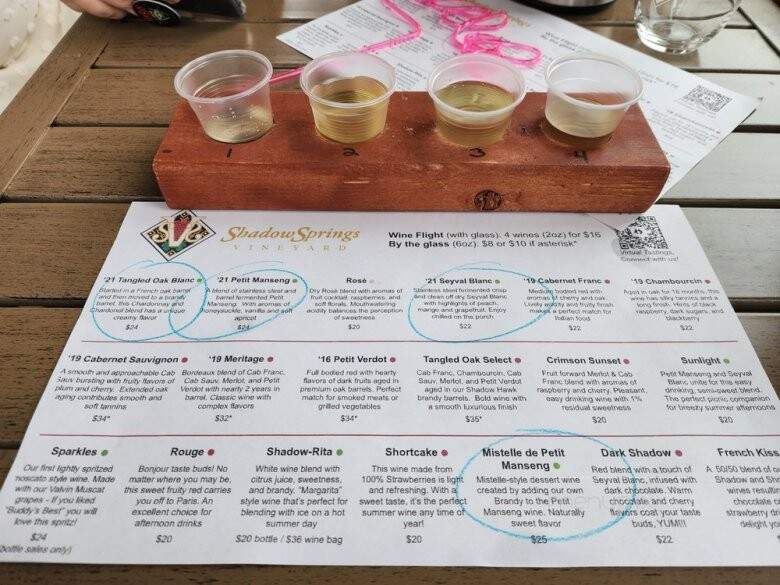 1 2 3 4
ShadowSprings
VINEYARD
Wine Flight (with glass): 4 wines (2oz) for $16
By the glass (6oz): $8 or $10 if asterisk*
Virtual Tastings,
Connect with us!
'21 Tangled Oak Blanc
Started in a French oak barrel
and then moved to a brandy
barrel, this Chardonnay and
Chardonel blend has a unique
creamy flavor
$24
'21 Petit Manseng
A blend of stainless steel and
barrel fermented Petit
Manseng. With aromas of
honeysuckle, vanilla and soft
apricot
$24
Rosé
Dry Rosé blend with aromas of
fruit cocktail, raspberries, and
soft florals. Mouthwatering
acidity balances the perception
of sweetness
$20
'21 Seyval Blanc
Stainless steel fermented crisp
and clean off dry Seyval Blanc
with highlights of peach,
mango and grapefruit. Enjoy
chilled on the porch
$22
'19 Cabernet Franc
Medium bodied red with
aromas of cherry and oak.
Lively acidity and fruity finish
makes a perfect match for
Italian food.
$22
'19 Chambourcin
Aged in oak for 18 months, this
wine has silky tannins and a
long finish. Hints of black
raspberry, dark sugars, and
blackberry
$22
'19 Cabernet Sauvignon
A smooth and approachable Cab
Sauv bursting with fruity flavors of
plum and cherry. Extended oak
aging contributes smooth and
soft tannins
$34*
'19 Meritage
Bordeaux blend of Cab Franc,
Cab Sauv, Merlot, and Petit
Verdot with nearly 2 years in
barrel. Classic wine with
complex flavors
$32*
'16 Petit Verdot
Full bodied red with hearty
flavors of dark fruits aged in
premium oak barrels. Perfect
match for smoked meats or
grilled vegetables
$34*
Tangled Oak Select
Cab Franc, Chambourcin, Cab
Sauv, Merlot, and Petit Verdot
aged in our Shadow Hawk
brandy barrels. Bold wine with
a smooth luxurious finish
$35*
Crimson Sunset
Fruit forward Merlot & Cab
Franc blend with aromas of
raspberry and cherry. Pleasant,
easy drinking wine with 1%
residual sweetness
$20
Sunlight
Petit Manseng and Seyval
Blanc unite for this easy
drinking, semi-sweet blend.
The perfect picnic companion
for breezy summer afternoons
$20
Sparkles
Our first lightly spritzed
moscato style wine. Made
with our Valvin Muscat
grapes - If you liked
"Buddy's Best" you will
love this spritz!
$24
(bottle sales only)
Rouge
Bonjour taste buds! No
matter where you may be,
this sweet fruity red carries
you off to Paris. An
excellent choice for
afternoon drinks
$20
Shadow-Rita
White wine blend with
citrus juice, sweetness,
and brandy. "Margarita"
style wine that's perfect for
blending with ice on a hot
summer day
$20 bottle / $36 wine bag
Shortcake
This wine made from
100% Strawberries is light
and refreshing. With a
sweet taste, it's the perfect
summer wine any time of
year!
$20
Mistelle de Petit
Manseng
Mistelle-style dessert wine
created by adding our own
Brandy to the Petit
Manseng wine. Naturally
sweet flavor
$25
Dark Shadow
Red blend with a touch of
Seyval Blanc, infused with
dark chocolate. Warm
chocolate and cherry
flavors coat your taste
buds, YUM!!!
$22
French Kiss
A 50/50 blend of
Shadow and
wines
chocolate
strawberry
delight